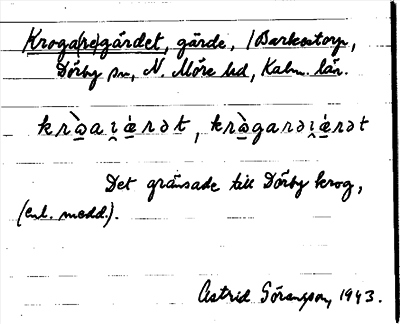 Kroga(re)gärdet, gärde, i Barkestorp,
Dörby sn, N. Möre hd, Kalm. län.
krò̱aı̯é̱rət, krò̱garəı̯é̱rət
Det gränsade till Dörby krog,
(enl. medd.).
Astrid Göransson, 1943.